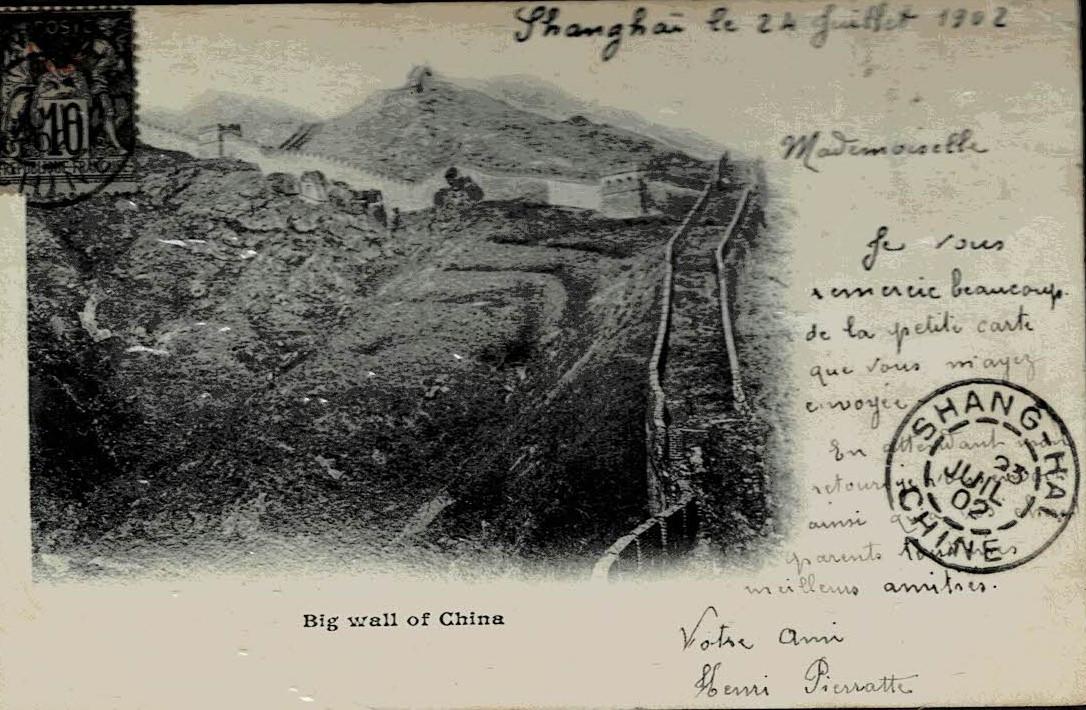 Shanghaï le 24 Juillet 1902
POSTE
10
Mademoiselle
Je vous
remercie beaucoup
de la petite carte
que vous m'ayez
envoyée
En attendant mon
retour
ainsi
parents
meilleurs amitiés.
Votre Ami
Henri Pierratte
SHANG-HAI
23
JUIL
02
CHINE
Big wall of China